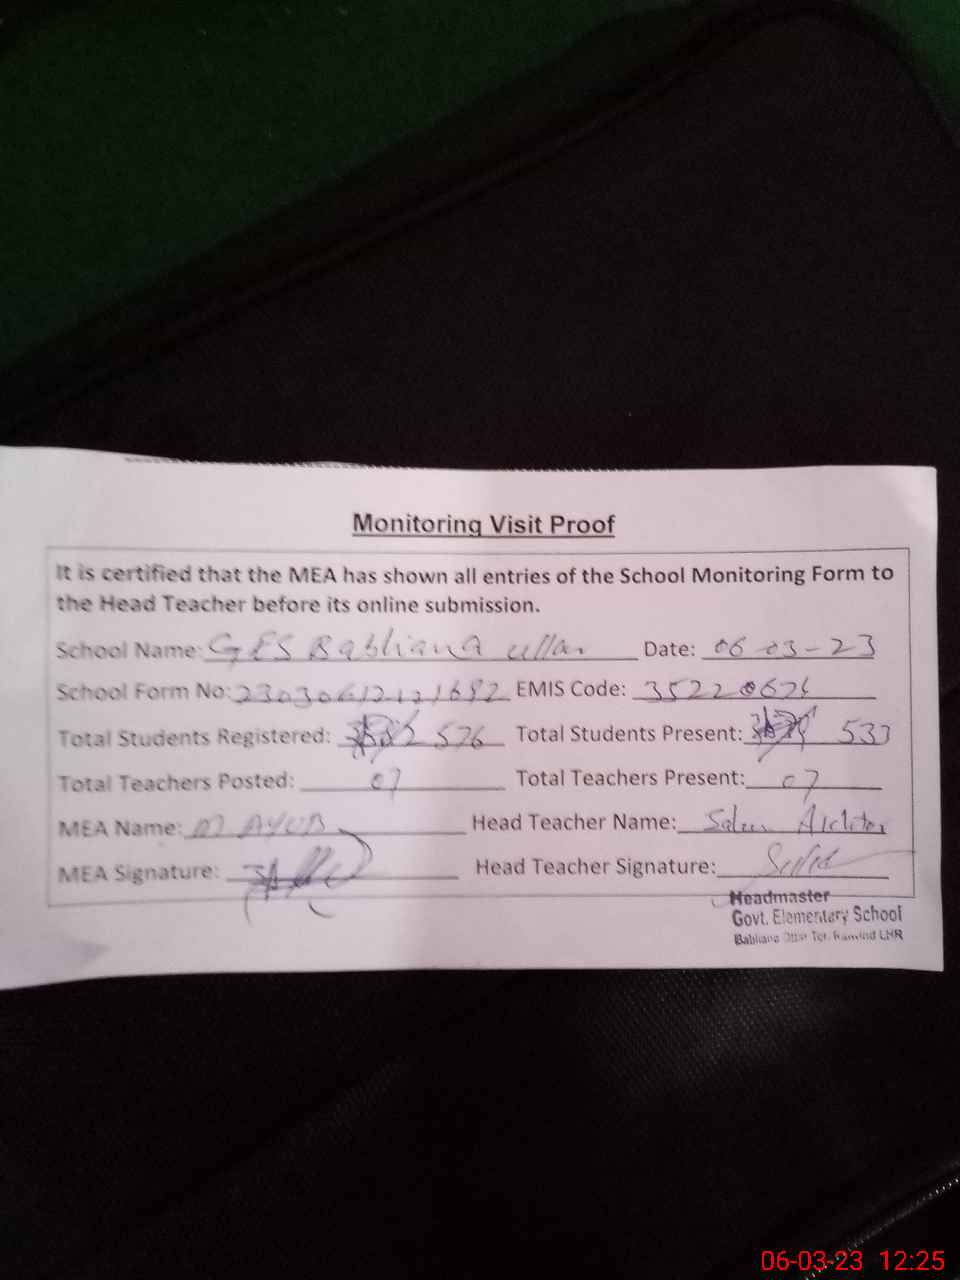 Monitoring Visit Proof
It is certified that the MEA has shown all entries of the School Monitoring Form to
the Head Teacher before its online submission.
School Name: GES Babliana ullar Date: 06-03-23
School Form No: EMIS Code:
Total Students Registered: 576 Total Students Present: 533
Total Teachers Posted: 07 Total Teachers Present: 07
MEA Name: M AYUB Head Teacher Name:
MEA Signature: Head Teacher Signature:
Headmaster
Govt. Elementary School
Babliana LHR
06-03-23 12:25